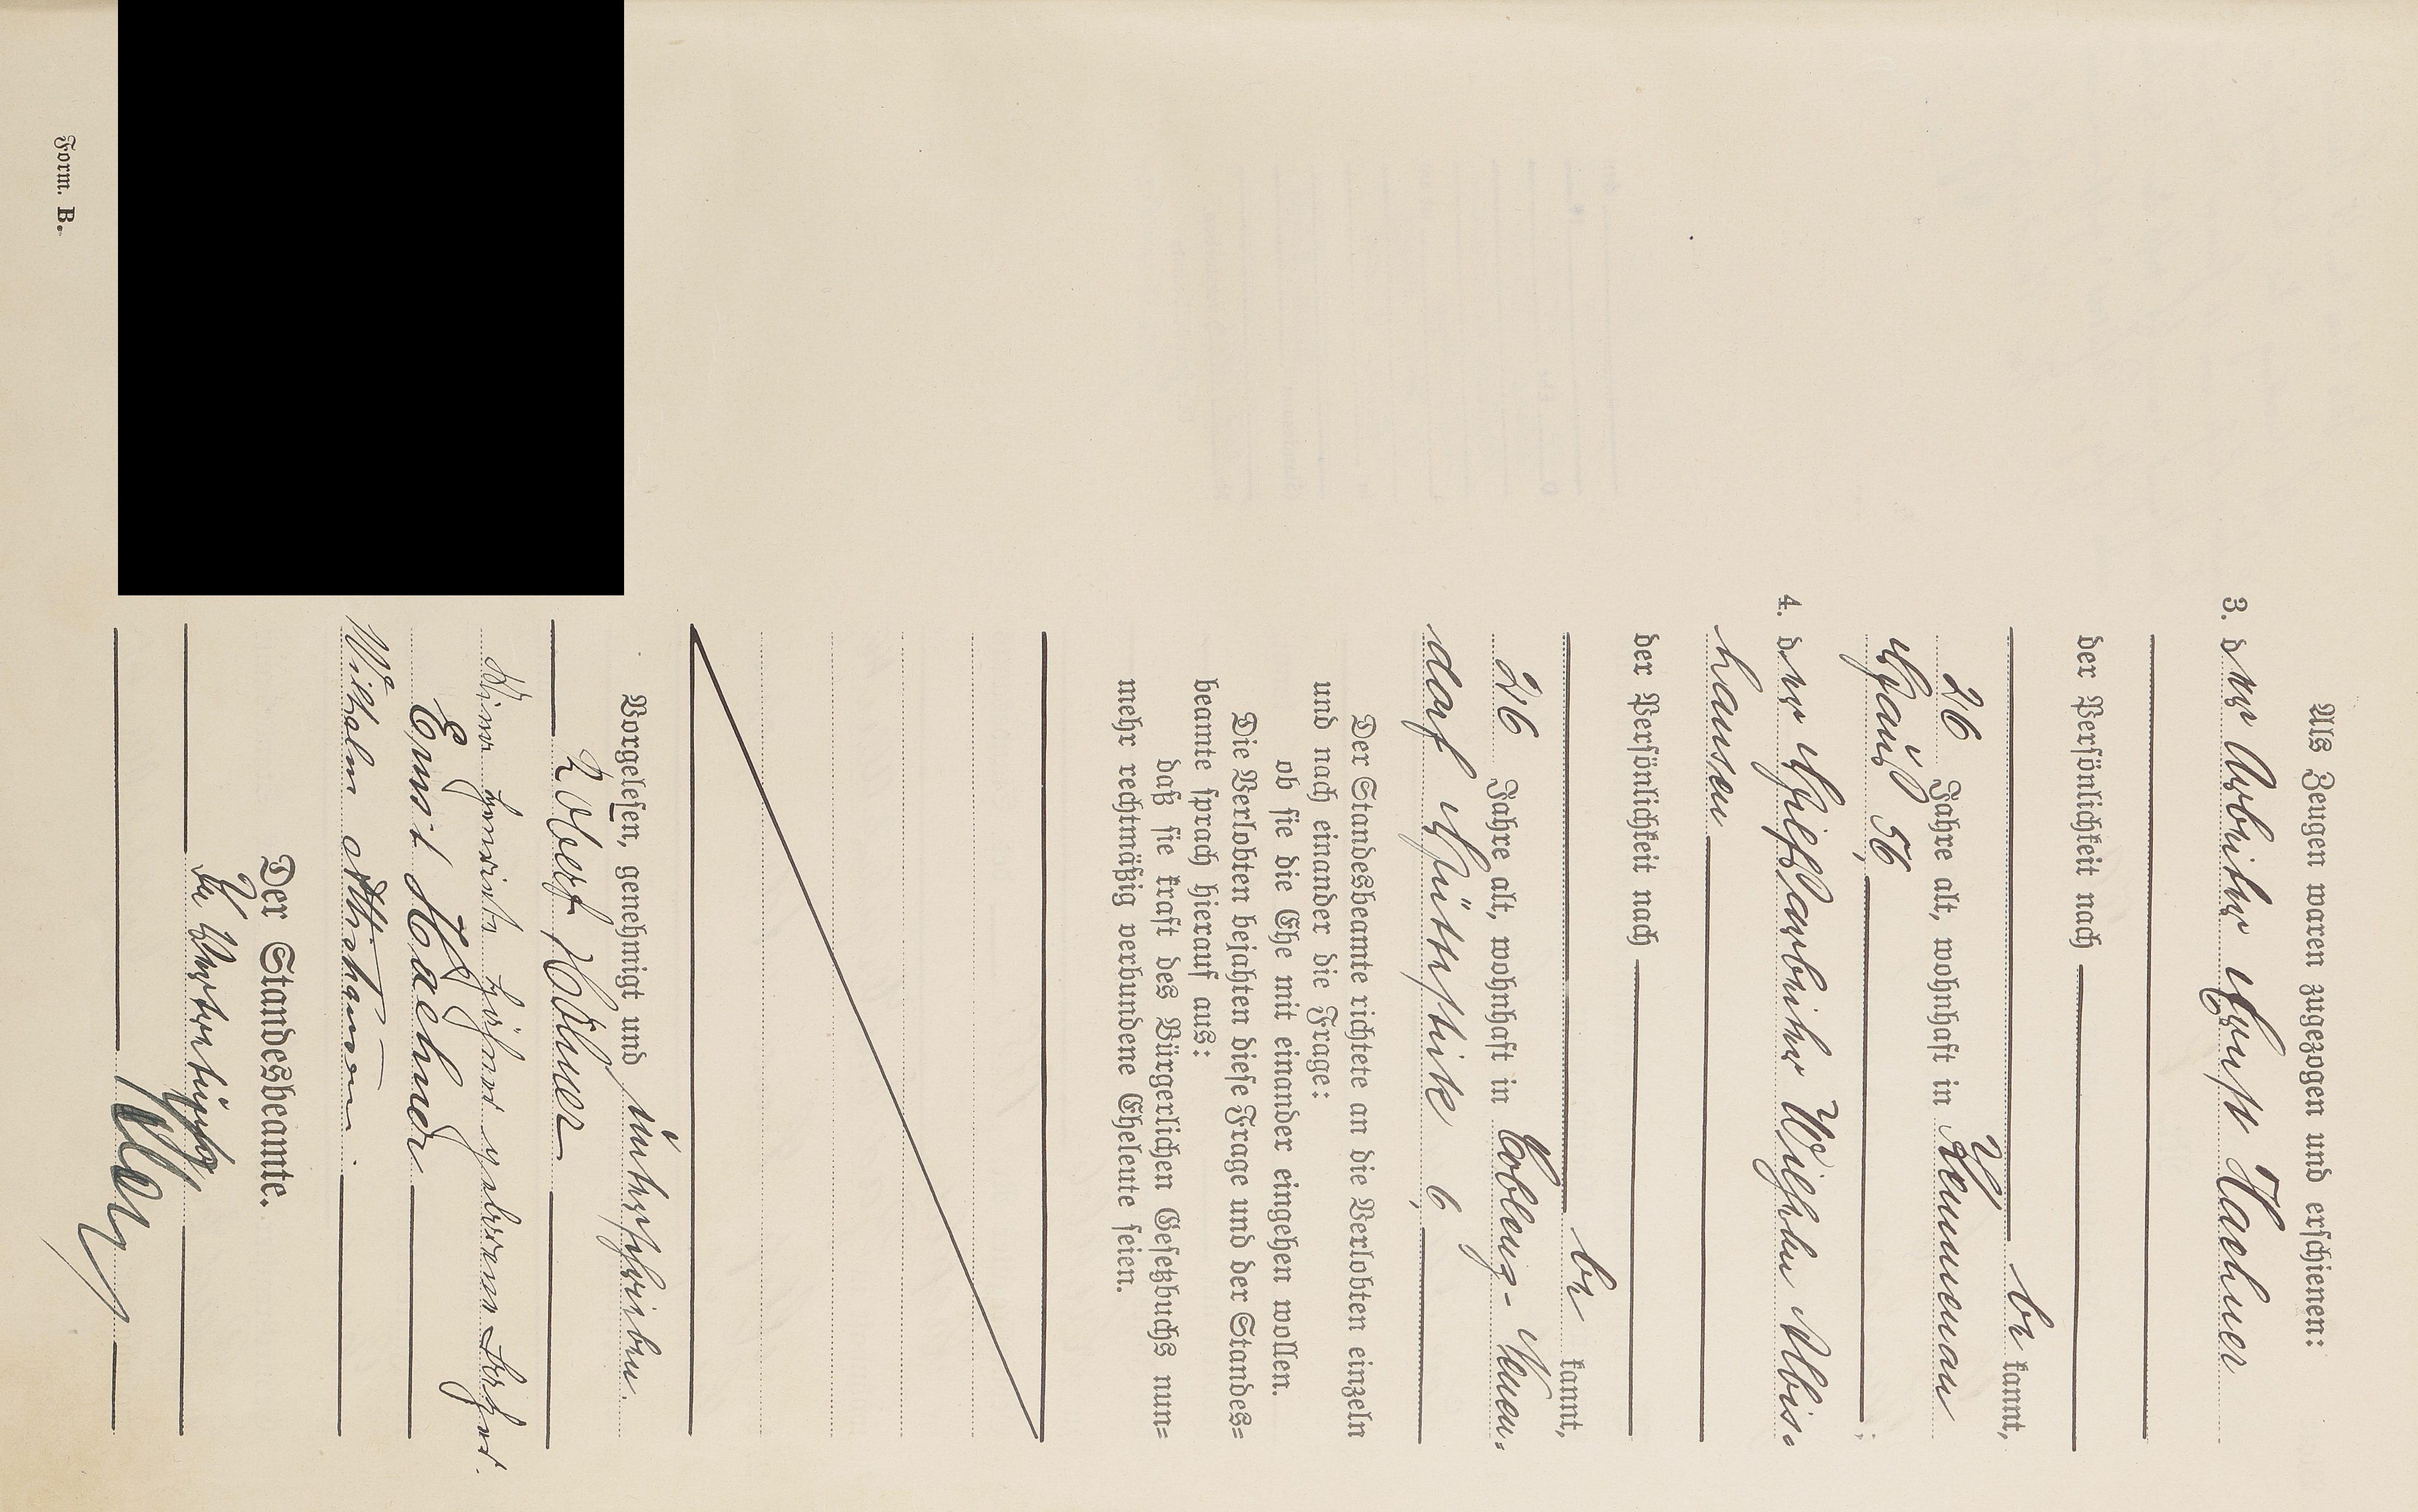 Als Zeugen waren zugezogen und erschienen:
3. der Arbeiter Ernst Haehner
der Persönlichkeit nach
be kannt,
26 Jahre alt, wohnhaft in Hemmerau
56;
4. der Hilfsarbeiter Wilhelm Albis-
hausen
der Persönlichkeit nach
be kannt,
26 Jahre alt, wohnhaft in Coblenz-Neuen-
dorf 6,
Der Standesbeamte richtete an die Verlobten einzeln
und nach einander die Frage:
ob sie die Ehe mit einander eingehen wollen.
Die Verlobten bejahten diese Frage und der Standes-
beamte sprach hierauf aus:
daß sie kraft des Bürgerlichen Gesetzbuchs nun-
mehr rechtmäßig verbundene Eheleute seien.
Vorgelesen, genehmigt und unterschrieben.
Robert Höhner
geborene
Ernst Haehner
Wilhelm
Der Standesbeamte.
In Vertretung
Form. B.